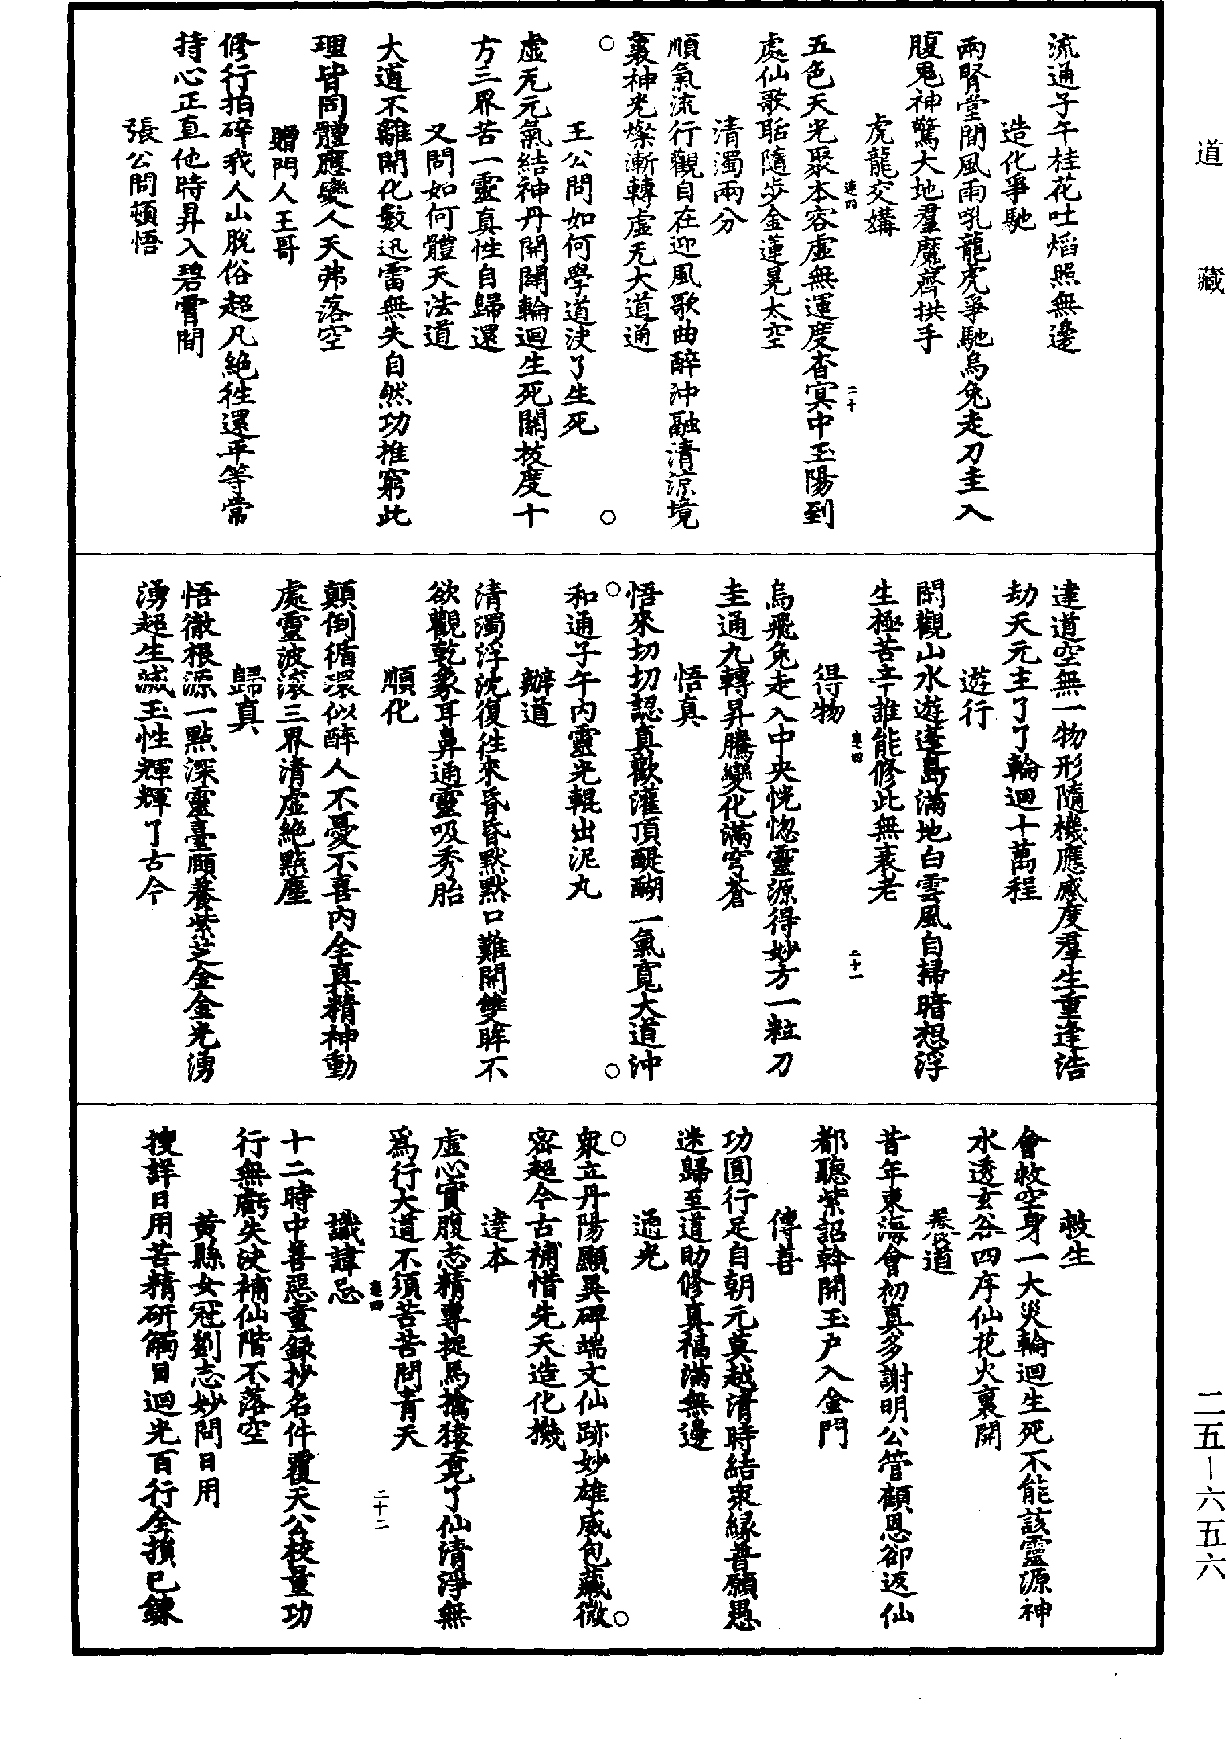 道藏
流通子午桂花吐熖照無邊
造化爭馳
兩腎堂間風雨吼龍虎爭馳烏兔走刀圭入
腹鬼神驚大地羣魔齊拱手
虎龍交媾
五色天光聚本容虛無運度杳冥中玉陽到
處仙歌聒隨步金蓮晃太空
清濁兩分
順氣流行觀自在迎風歌曲醉沖融清涼境
裏神光燦漸轉虛无大道通
王公問如何學道決了生死
虛无元氣結神丹開闡輪迴生死關拔度十
方三界苦一靈真性自歸還
又問如何體天法道
大道不離開化數迅雷無失自然功推窮此
理皆同體應變人天弗落空
贈門人王哥
修行拍碎我人山脫俗超凡絶徃還平等常
持心正直他時昇入碧霄間
張公問頓悟
達道空無一物形隨機應感度羣生重逢浩
劫天元主了了輪迴十萬程
遊行
閑觀山水遊蓬島滿地白雲風自掃暗想浮
生極苦辛誰能修此無衰老
得物
烏飛兔走入中央恍惚靈源得妙方一粒刀
圭通九轉昇騰變化滿穹蒼
悟真
悟來切切認真歡灌頂醍醐一氣寬大道沖
和通子午內靈光輥出泥丸
辦道
清濁浮沈復往來昏昏默默口難開雙眸不
欲觀乾象耳鼻通靈吸秀胎
順化
顛倒循環似醉人不憂不喜內全真精神動
處靈波滾三界清虛絶點塵
歸真
悟徹根源一點深靈臺頤養紫芝金金光湧
湧超生滅玉性輝輝了古今
救生
會救空身一大災輪迴生死不能該靈源神
水透玄谷四序仙花火裏開
養道
昔年東海會初真多謝明公管顧恩卻返仙
都聽紫詔幹開玉戶入金門
傳善
功圓行足自朝元莫越清時結衆緣普願愚
迷歸至道助修真福滿無邊
通光
衆立丹陽顯異碑端文仙跡妙雄威包藏微
密超今古補惜先天造化機
達本
虛心實腹志精專捉馬擒猿竟了仙清淨無
爲行大道不須苦苦問青天
識諱忌
十二時中善惡童録抄名件覆天公校量功
行無虧失決補仙階不落空
黃縣女冠劉志妙問日用
搜詳日用苦精研觸目迴光百行全損己鍊
二五－六五六